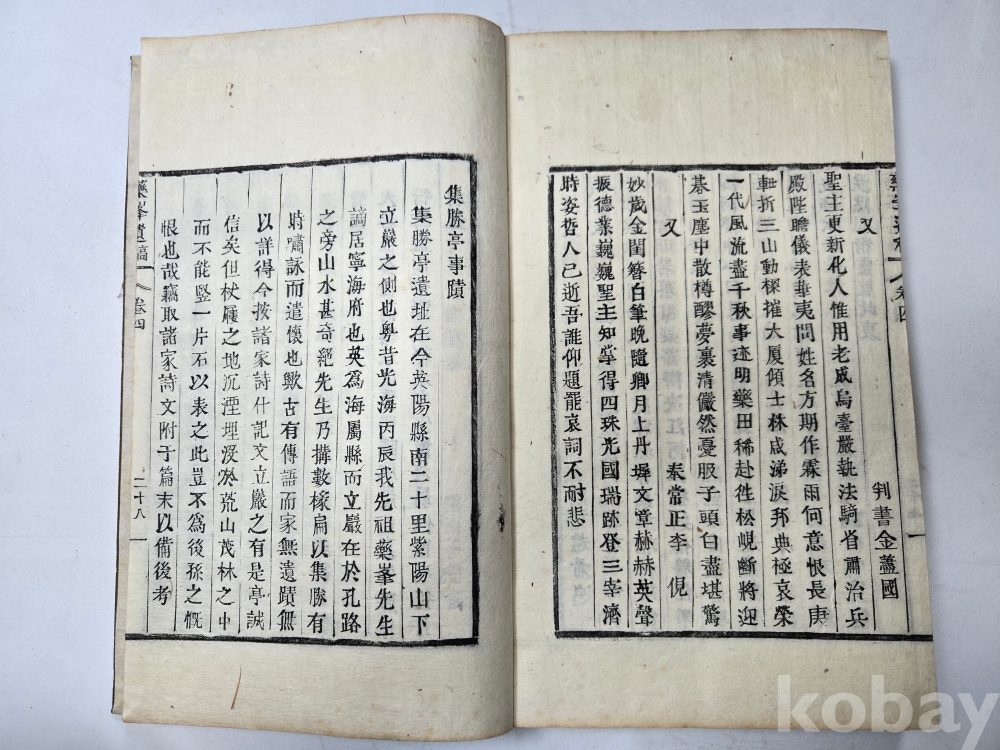 又
判書金藎國
聖主更新化人惟用老成烏臺嚴執法騎省肅治兵
殿陛瞻儀表華夷問姓名方期作霖雨何意恨長庚
軫折三山動樑摧大厦傾士林咸涕淚邦典極哀榮
一代風流盡千秋事迹明藥田稀赴徃松峴斷將迎
碁玉塵中散樽醪夢裏清儼然憂服子頭白盡堪驚
又
奉常正李 倪
妙歲金閨簪白筆晩隨卿月上丹墀文章赫赫英聲
振德業巍巍聖主知掌得四珠光國瑞跡登三宰濟
時姿哲人已逝吾誰仰題罷哀詞不耐悲
藥峯遺稿
卷四
二十八
集勝亭事蹟
集勝亭遺址在今英陽縣南二十里紫陽山下
立巖之側也粤昔光海丙辰我先祖藥峯先生
謫居寧海府也英爲海屬縣而立巖在於孔路
之旁山水甚奇絕先生乃搆數椽扁以集勝有
時嘯詠而遺懷也歟古有傳語而家無遺蹟無
以詳得今按諸家詩什記文立巖之有是亭誠
信矣但杖屨之地沉湮埋沒於荒山茂林之中
而不能竪一片石以表之此豈不爲後孫之慨
恨也哉竊取諸家詩文附于篇末以備後考
kobay